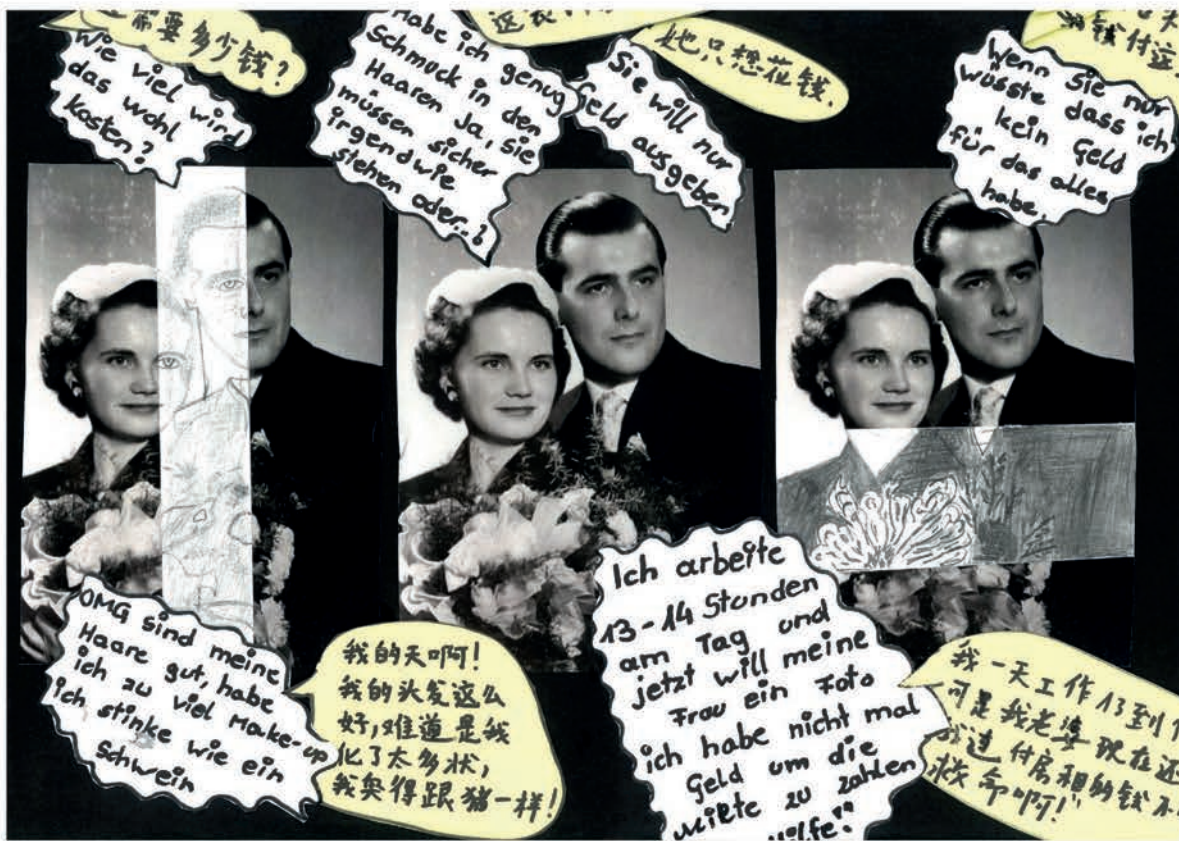 需要多少钱?
Wie viel wird
das wohl
kosten?
Habe ich genug
Schmuck in den
Haaren Ja, sie
müssen sicher
irgendwie
stehen oder..?
她只想花钱.
Sie will nur
Geld ausgeben
钱付这
Wenn sie nur
wüsste dass ich
kein Geld
für das alles
habe.
OMG sind meine
Haare gut, habe
ich zu viel Make-up
ich stinke wie ein
Schwein
我的天啊!
我的头发这么
好,难道是我
化了太多状,
我臭得跟猪一样!
Ich arbeite
13-14 Stunden
am Tag und
jetzt will meine
Frau ein Foto
ich habe nicht mal
Geld um die
Miete zu zahlen
Hilfe!"
我一天工作13到
可是我老婆现在还
付房租的钱不
救命啊!"